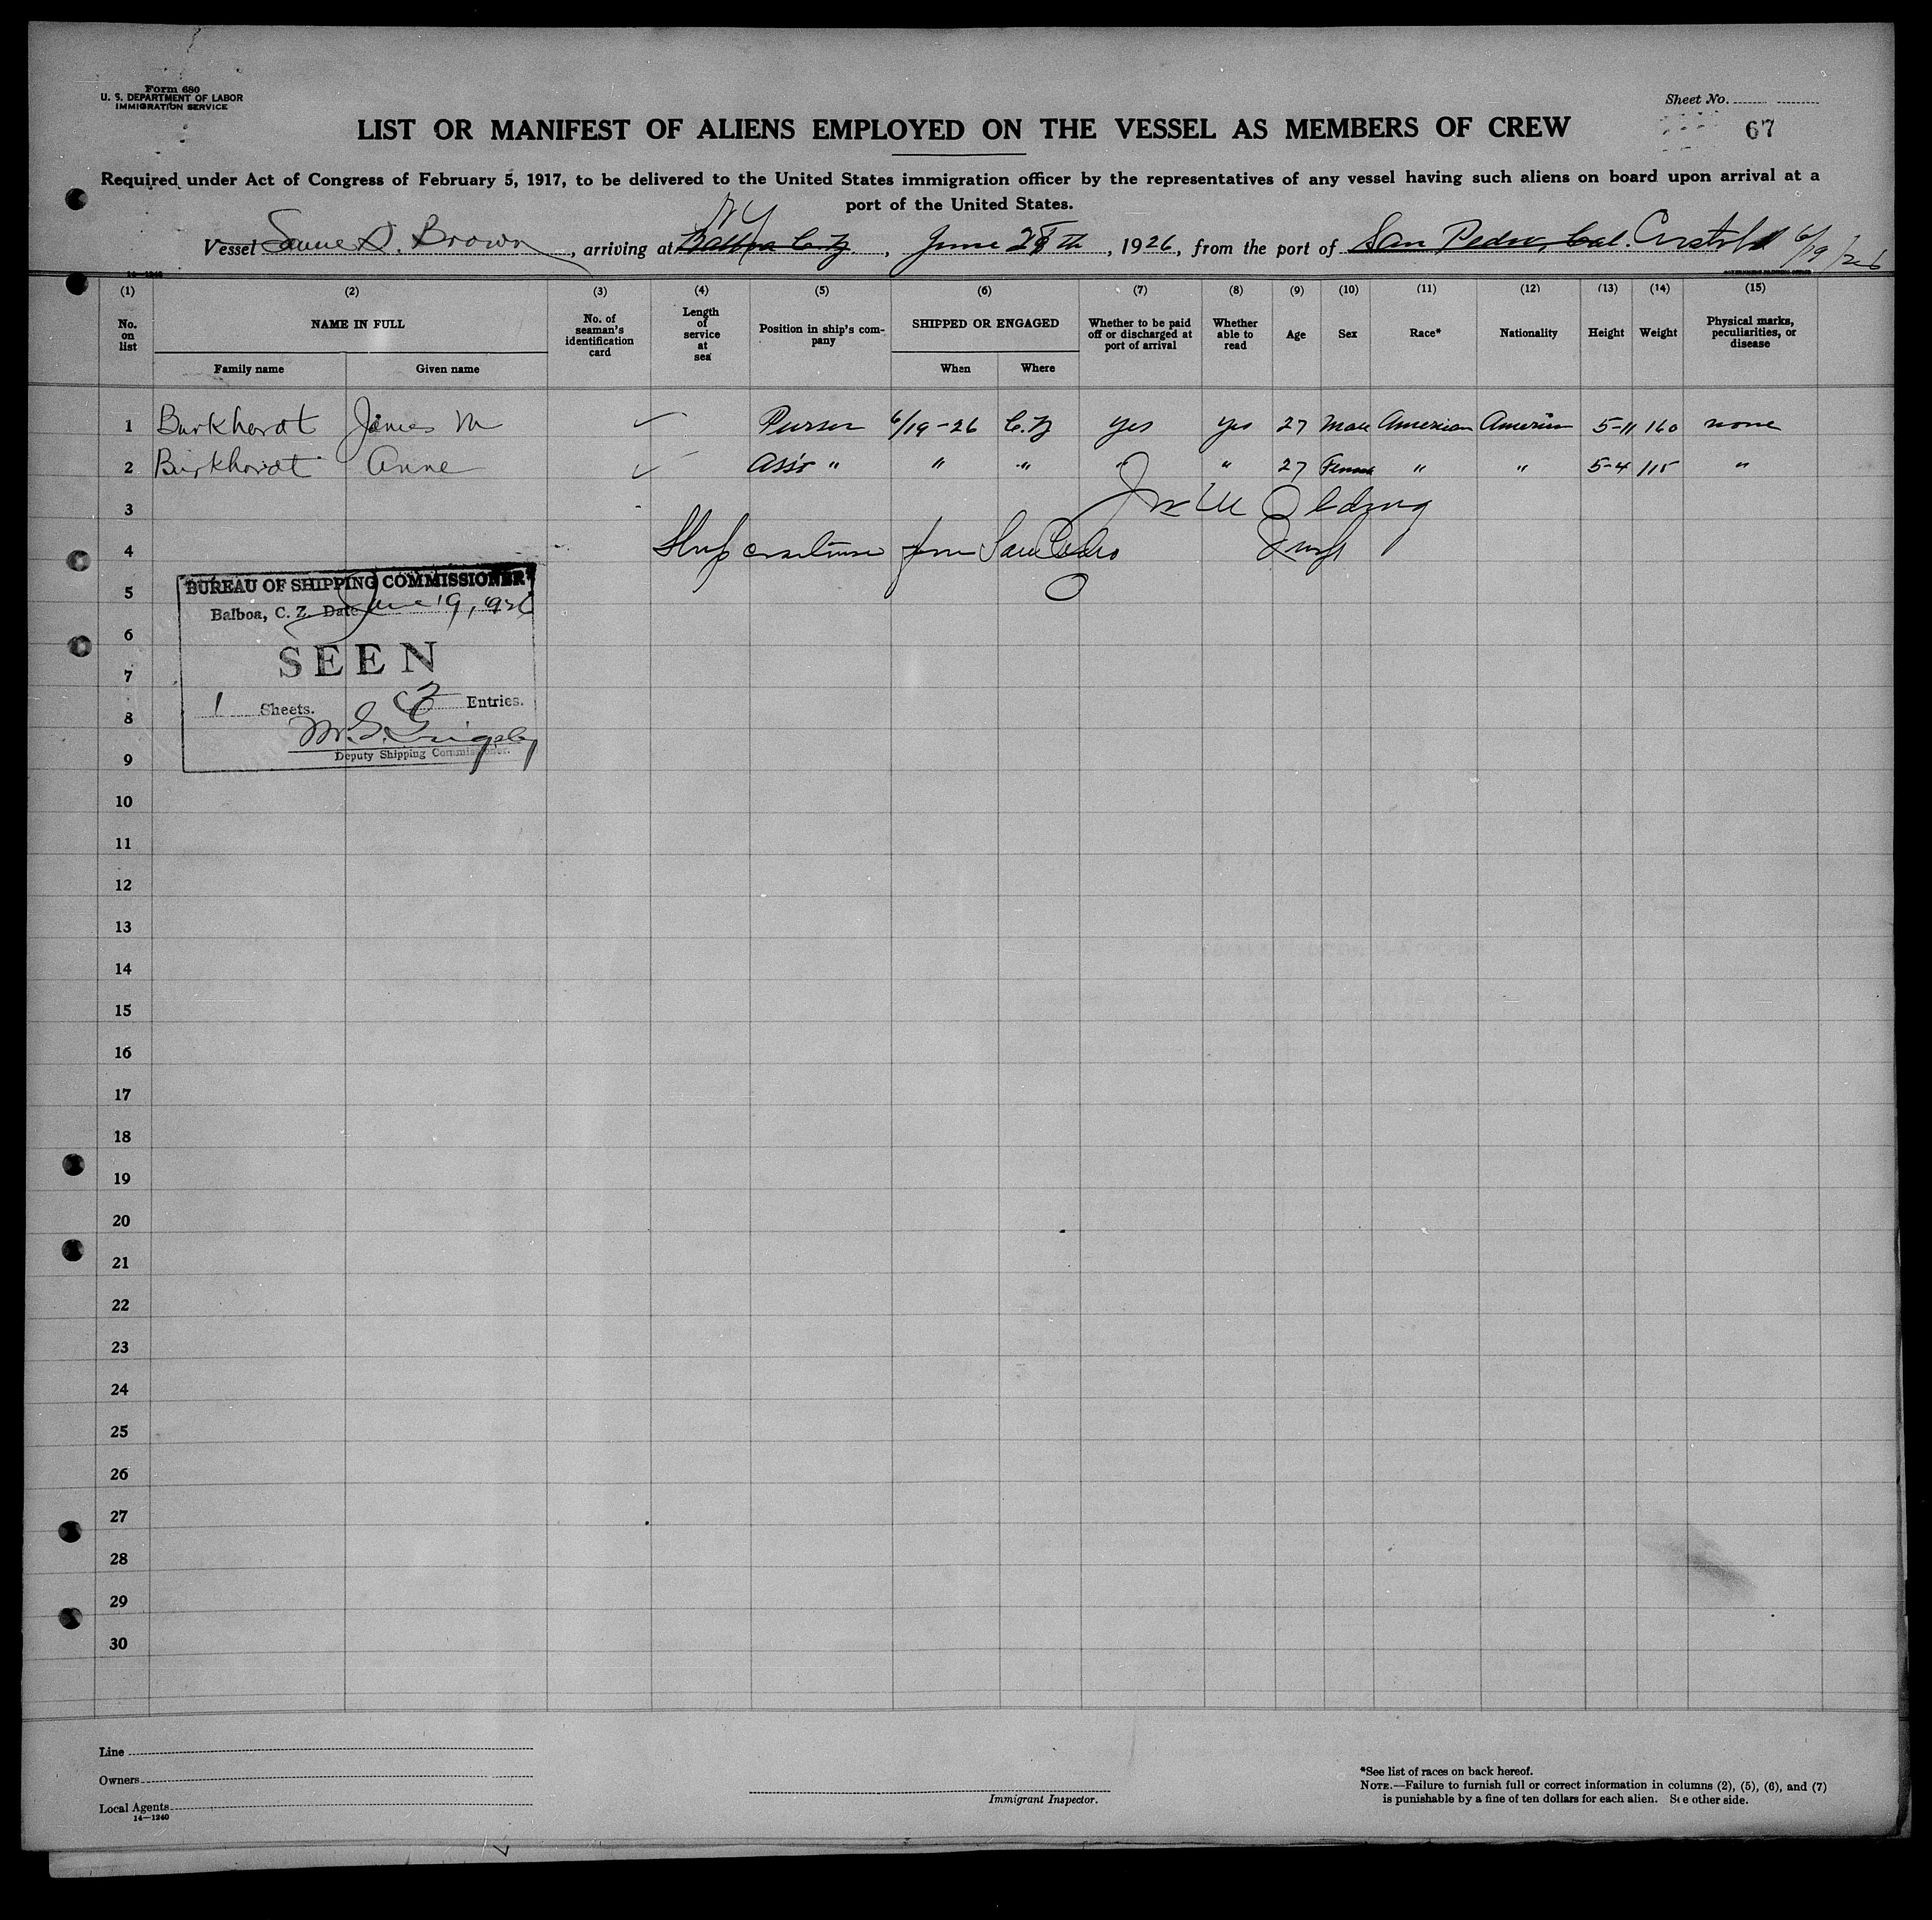 Form 680
U. S. DEPARTMENT OF LABOR
IMMIGRATION SERVICE
Sheet No.
67
LIST OR MANIFEST OF ALIENS EMPLOYED ON THE VESSEL AS MEMBERS OF CREW
Required under Act of Congress of February 5, 1917, to be delivered to the United States immigration officer by the representatives of any vessel having such aliens on board upon arrival at a
port of the United States.
N Y
Vessel D. Brown, arriving at Balboa C. Z., June 28th, 1926, from the port of San Pedro, Cal. 6/19/26
14—1240
(1) (2) (3) (4) (5) (6) (7) (8) (9) (10) (11) (12) (13) (14) (15)
No. on list NAME IN FULL Family name Given name No. of seaman's identification card Length of service at sea Position in ship's company SHIPPED OR ENGAGED When Where Whether to be paid off or discharged at port of arrival Whether able to read Age Sex Race* Nationality Height Weight Physical marks, peculiarities, or disease
1 Burkhardt James M ✓ Purser 6/19-26 C. Z yes yes 27 Male American American 5-11 160 none
2 Burkhardt Anne ✓ Ass't " " " " " 27 Female " " 5-4 115 "
3
4 from San Pedro
5
6
7
8
9
BUREAU OF SHIPPING COMMISSIONER
Balboa, C. Z. Date June 19, 1926
SEEN
1 Sheets. 2 Entries.
M. G. Grigsby
Deputy Shipping Commissioner.
10
11
12
13
14
15
16
17
18
19
20
21
22
23
24
25
26
27
28
29
30
Line
Owners
Local Agents
14—1240
Immigrant Inspector.
*See list of races on back hereof.
NOTE.—Failure to furnish full or correct information in columns (2), (5), (6), and (7)
is punishable by a fine of ten dollars for each alien. See other side.